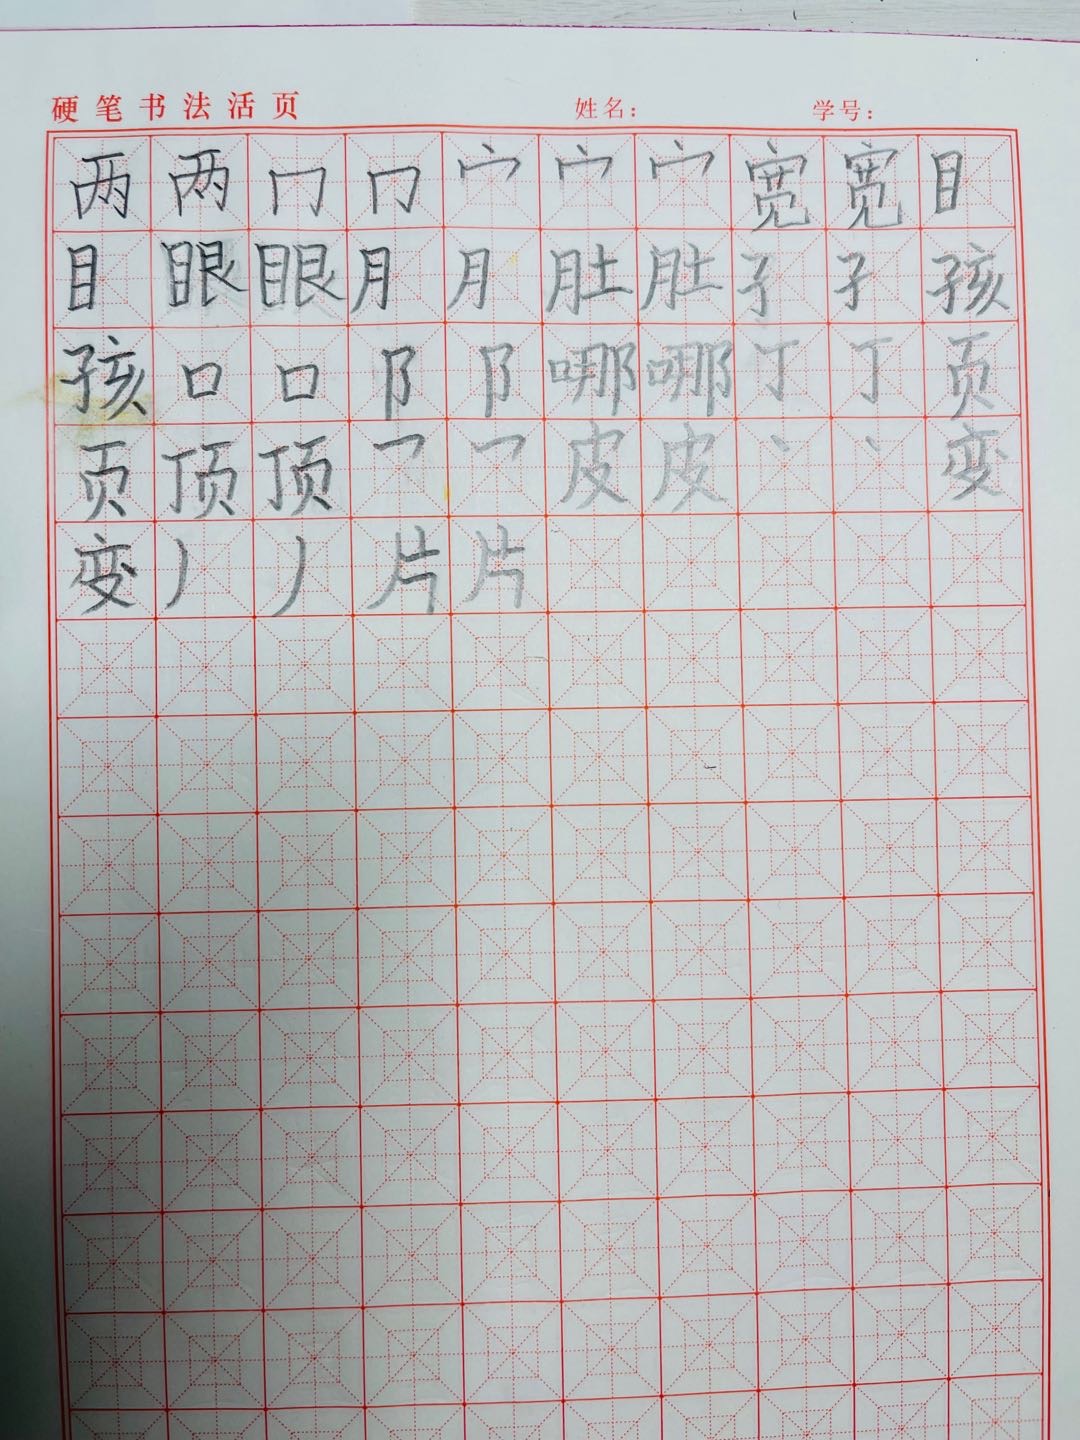 硬笔书法活页 姓名： 学号：
两两冂冂宀宀宀宽宽目
目眼眼月月肚肚孑孑孩
孩口口阝阝哪哪丁丁页
页顶顶乛乛皮皮丶丶变
变丿丿片片